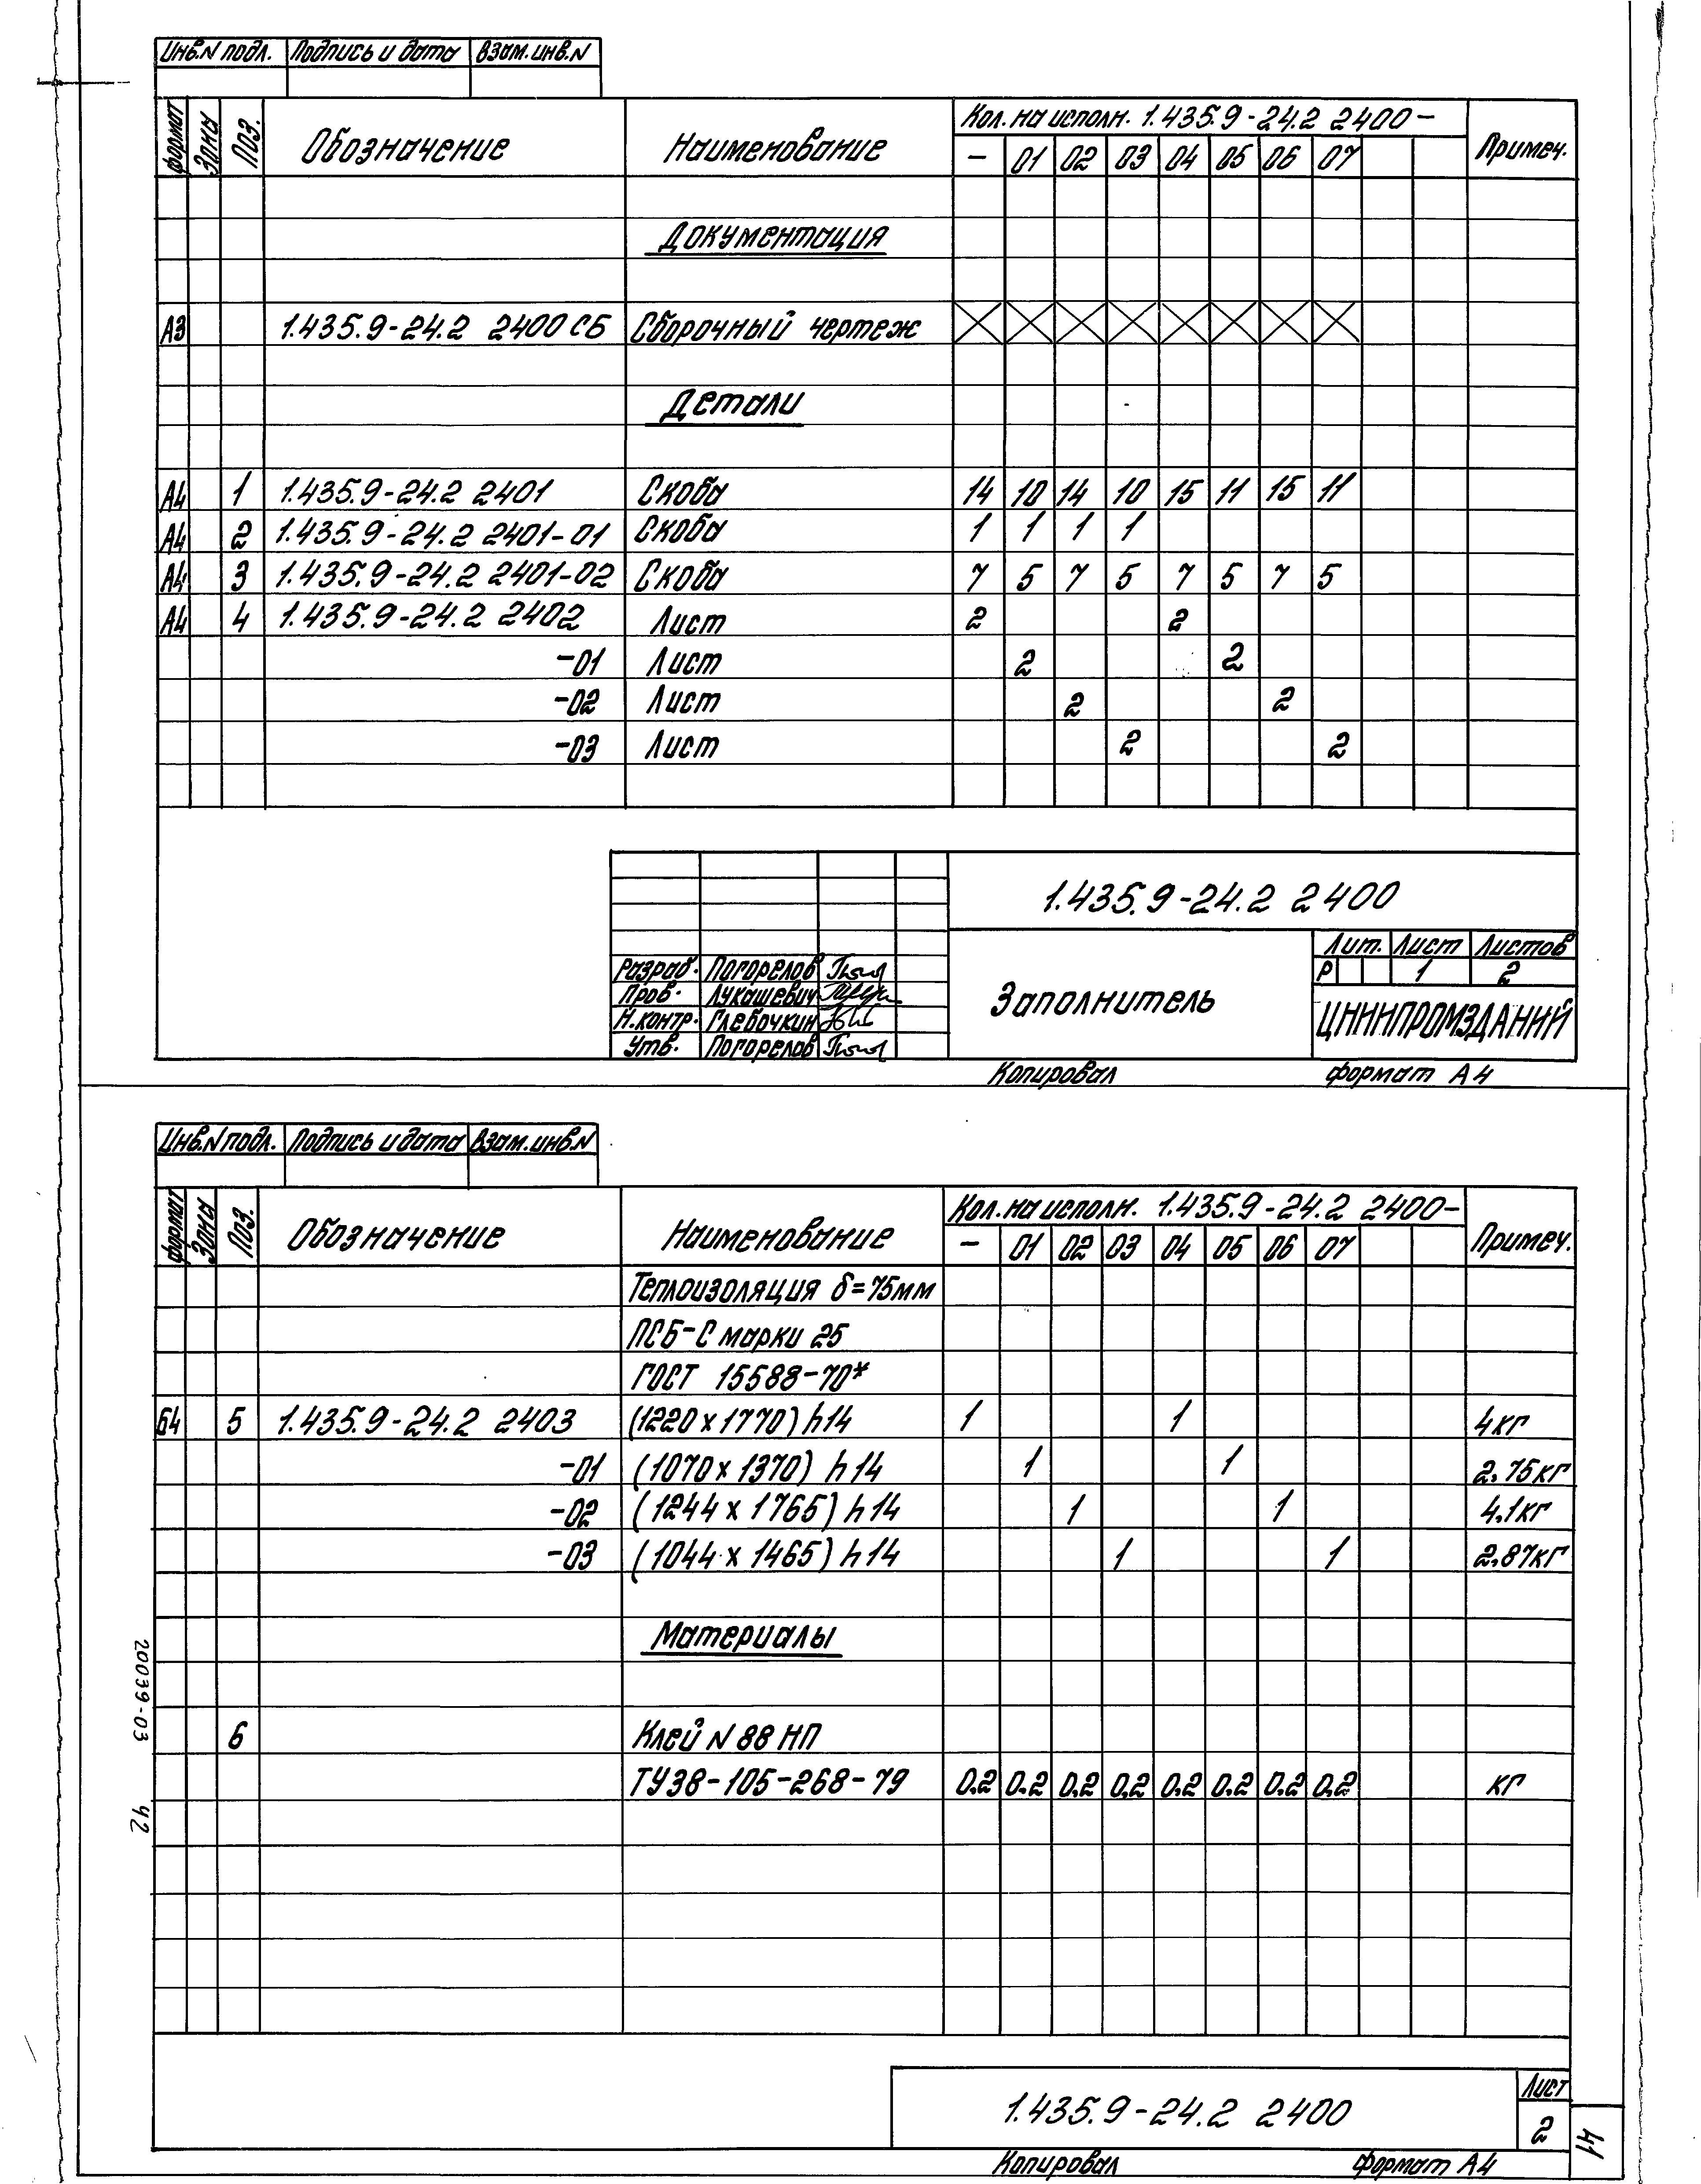 Инв.N подл. Подпись и дата Взам.инв.N
Формат Зона Поз. Обозначение Наименование Кол. на исполн. 1.435.9-24.2 2400- Примеч.
- 01 02 03 04 05 06 07
Документация
А3 1.435.9-24.2 2400 СБ Сборочный чертеж
Детали
А4 1 1.435.9-24.2 2401 Скоба 14 10 14 10 15 11 15 11
А4 2 1.435.9-24.2 2401-01 Скоба 1 1 1 1
А4 3 1.435.9-24.2 2401-02 Скоба 7 5 7 5 7 5 7 5
А4 4 1.435.9-24.2 2402 Лист 2 2
-01 Лист 2 2
-02 Лист 2 2
-03 Лист 2 2
1.435.9-24.2 2400
Лит. Лист Листов
Р 1 2
Разраб. Погорелов
Пров. Лукашевич
Н.контр. Глебочкин
Утв. Погорелов
Заполнитель
ЦНИИПРОМЗДАНИЙ
Копировал формат А4
Инв.N подл. Подпись и дата Взам.инв.N
Формат Зона Поз. Обозначение Наименование Кол. на исполн. 1.435.9-24.2 2400- Примеч.
- 01 02 03 04 05 06 07
Теплоизоляция δ=75мм
ПСБ-С марки 25
ГОСТ 15588-70*
Б4 5 1.435.9-24.2 2403 (1220х1770) h14 1 1 4кг
-01 (1070х1370) h14 1 1 2.75кг
-02 (1244х1765) h14 1 1 4.1кг
-03 (1044х1465) h14 1 1 2.87кг
Материалы
6 Клей N 88 НП
ТУ38-105-268-79 0.2 0.2 0.2 0.2 0.2 0.2 0.2 0.2 кг
20039-03 42
1.435.9-24.2 2400
Лист
2
41
Копировал формат А4